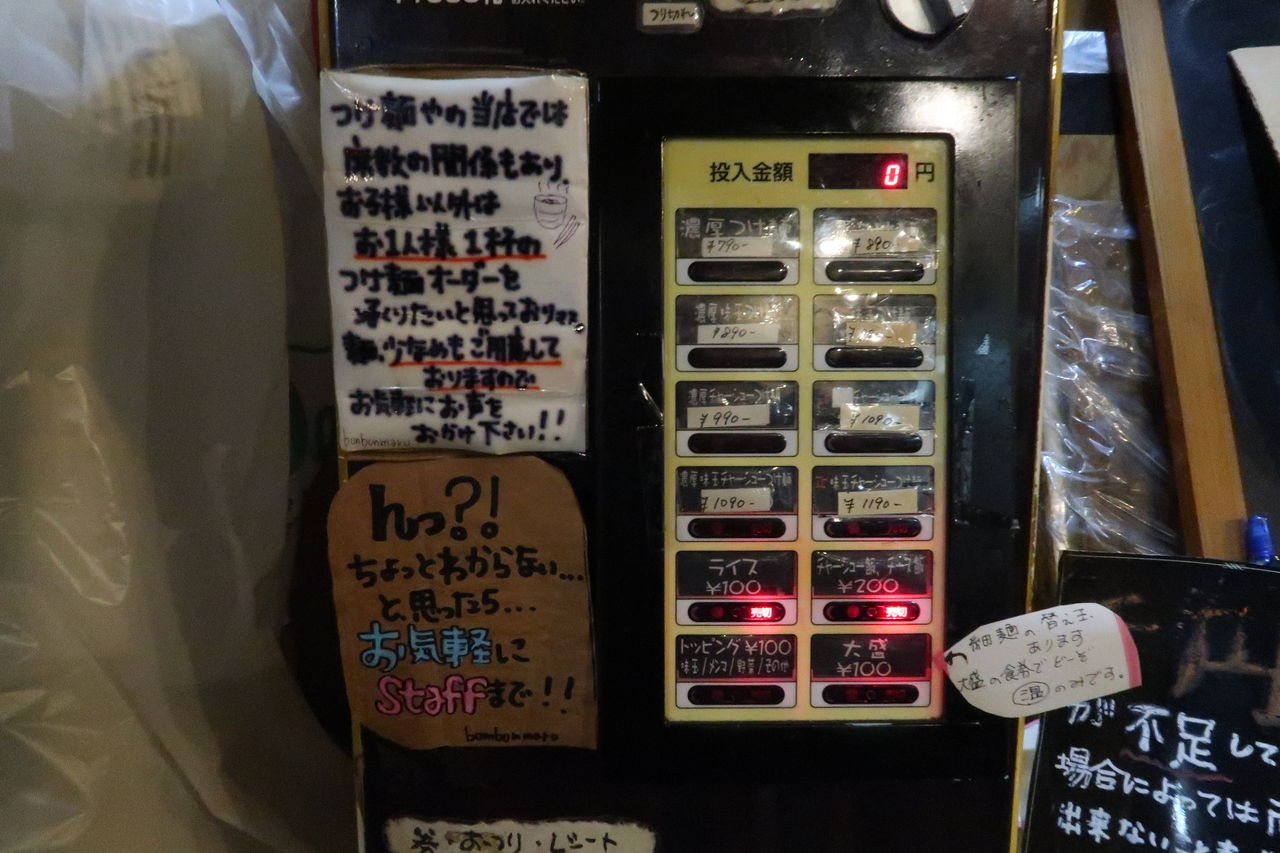 つり切れ
つけ麺やの当店では
席数の関係もあり、
お子様以外は
お1人様1杯の
つけ麺オーダーを
承りたいと思っております。
麺少なめもご用意して
おりますので
お気軽にお声を
おかけ下さい!!
bonbonmaru
んっ?!
ちょっとわからない...
と、思ったら...
お気軽に
Staffまで!!
bombonmaru
券・おつり・レシート
投入金額 0 円
濃厚つけ麺
¥790-
¥890-
濃厚味玉つけ麺
¥890-
濃厚チャーシューつけ麺
¥990-
¥1090-
濃厚味玉チャーシューつけ麺
¥1090-
味玉チャーシューつけ麺
¥1190-
ライス
¥100
売切
チャーシュー飯、チーズ飯
¥200
売切
トッピング ¥100
味玉/メンマ/野菜/その他
大盛
¥100
細麺の替え玉
あります
大盛の食券でどーぞ
温のみです。
が不足して
場合によっては
出来ないことも